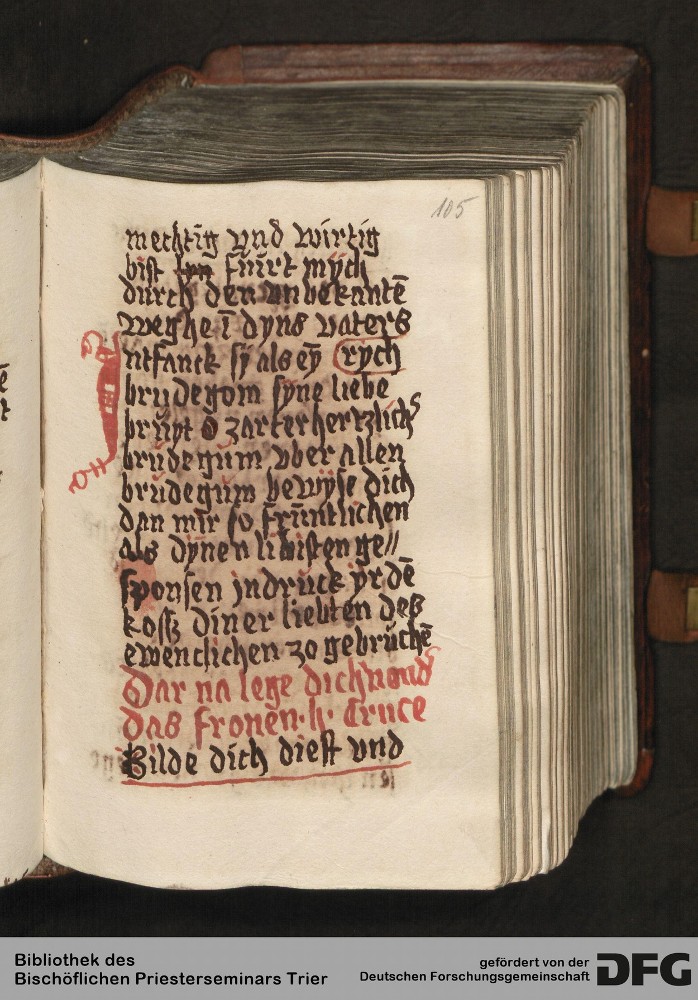 105
mechtig vnd wirtig
bist fuirt mych
durch den vnbekantē
weghe ī dyns vaters
Intfanck sy als eȳ rych
brudegom syne liebe
bruyt o zarter hertzlichs
brudegum vber allen
brudegum bewyse dich
dan mir so fruntlichen
als dynen libisten ge//
sponsen jndruck yr dē
koss diner liebten deß
ewenclichen zo gebruchē
Dar na lege dich vnd's
das fronen · h · Cruce
Bilde dich diest vnd
Bibliothek des
Bischöflichen Priesterseminars Trier
gefördert von der
Deutschen Forschungsgemeinschaft
DFG